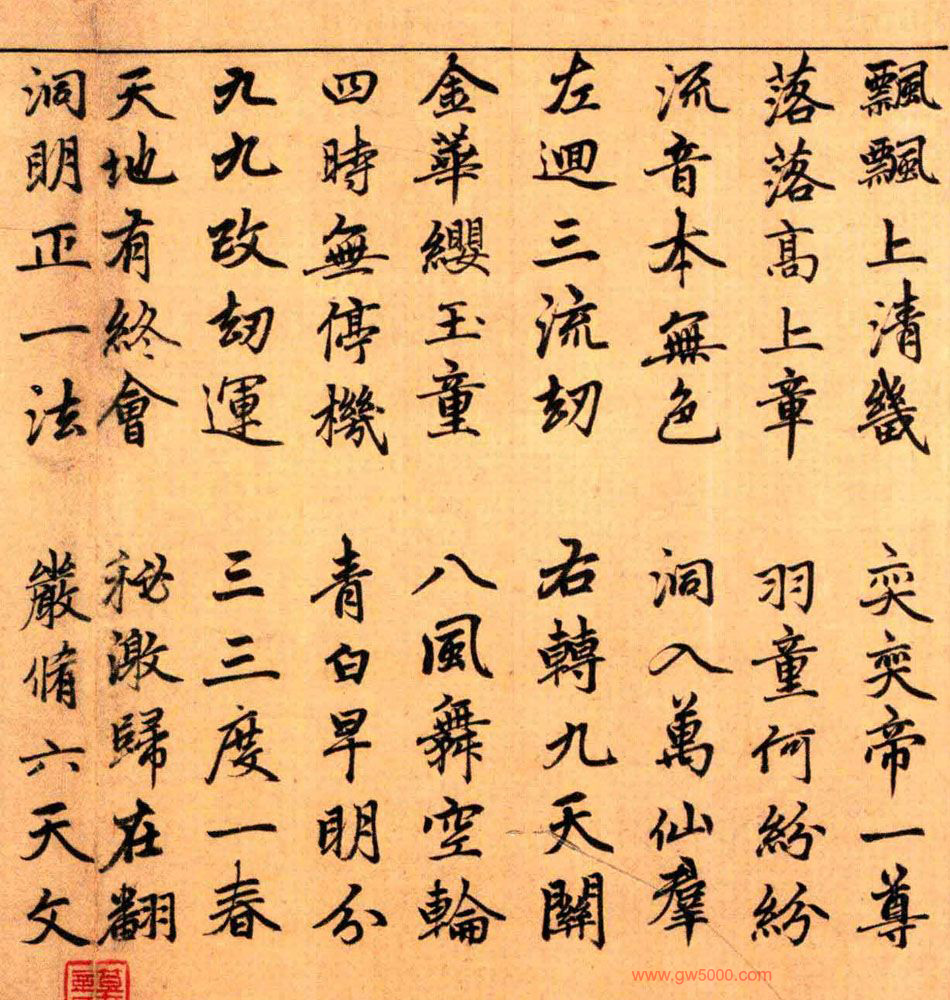 飄飄上清畿 奕奕帝一尊
落落高上章 羽童何紛紛
流音本無色 洞入萬仙羣
左迴三流劫 右轉九天關
金華纓玉童 八風舞空輪
四時無停機 青白早明分
九九改劫運 三三度一春
天地有終會 秘激歸在翻
洞明正一法 嚴脩六天文
www.gw5000.com